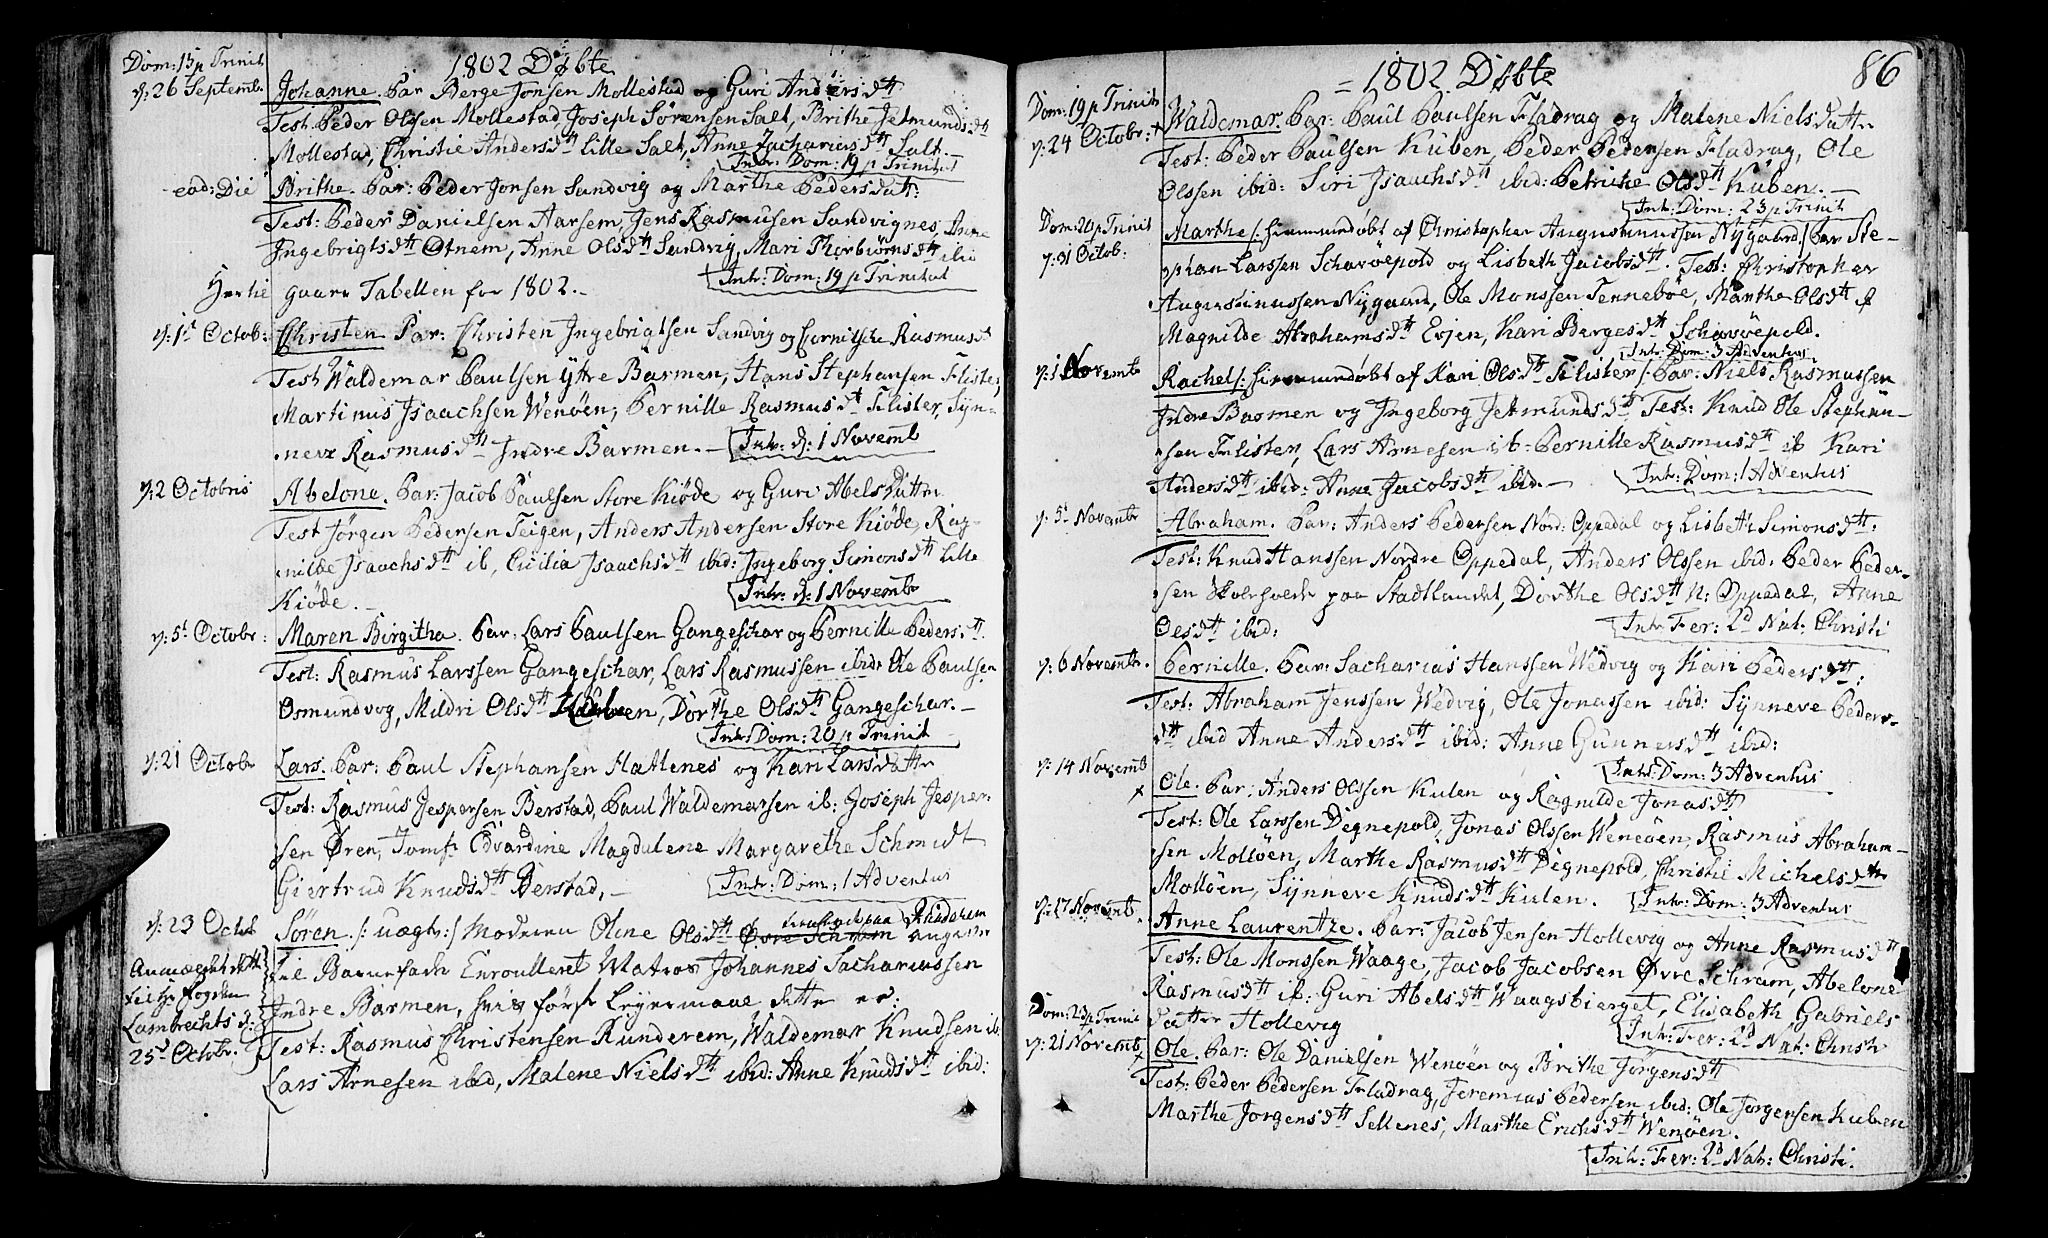 1802 Døbte
Dom: 15 p Trinit
d: 26 Septemb. Johanne. Par Berge Jonsen Mollestad og Guri Andersdtt
Test. Peder Olssen Mollestad, Joseph Sørensen Salt, Brithe Jetmundsdtt
Mollestad, Christie Andersdtt Lille Salt, Anne Zachariasdtt Salt.
Intr: Dom: 19 p Trinitat
ead: Die Brithe. Par: Peder Jonsen Sandvig og Marthe Pedersdatt:
Test: Peder Danielsen Aarsem, Jens Rasmusen Sandvignes, Anne
Ingebrigtsdtt Otnem, Anne Olsdtt Sandvig, Mari Thorbiørnsdtt ibid
Intr: Dom: 19 p Trinitat
Hertil gaaer Tabellen for 1802.
d: 1st Octob: Christen Par: Christen Ingebrigtsen Sandvig og Rasmusdt
Test Waldemar Paulsen Yttre Barmen, Hans Stephansen Flister,
Martinus Isaachsen Wenøen, Pernille Rasmusdt Flister, Syn-
neve Rasmusdtt Indre Barmen. - Intr: d: 1 Novemb
d: 2 Octobris Abelone. Par: Jacob Paulsen Store Kiøde og Guri Abelsdatter
Test Jørgen Pedersen Teigen, Anders Andersen Store Kiøde, Rag-
nilde Isaachsdtt ib, Cicilia Isaachsdtt ibid: Ingeborg Simonsdtt Lille
Kiøde. - Intr: d: 1 Novembr
d: 5t Octobr: Maren Birgitha. Par: Lars Paulsen Gangeschar og Pernille Pedersdtt.
Test: Rasmus Larssen Gangeschar, Lars Rasmussen ibid: Ole Paulsen
Osmundvog, Mildri Olsdtt Dorthe Olsdtt Gangeschar. -
Intr: Dom: 20 p Trinit
d: 21 Octobr Lars. Par: Paul Stephansen Hatlenes og Kari Larsdatter
Test: Rasmus Jespersen Berstad, Paul Waldemarsen ib: Joseph Jesper-
sen Øren, Jomfr Edvardine Magdalene Margarethe Schmidt
Giertrud Knudsdtt Berstad, - Intr: Dom: 1 Adventus
d: 23 Octob Søren. /: uægte :/ Moderen Oline Olsdtt Øvre Schram angiver
til Barnefader Enroulleret Matros Johannes Sachariassen
Indre Barmen, hvis først Leyermaal dette er.
Test: Rasmus Christensen Runderem, Waldemar Knudsen ib
Lars Arnesen ibid, Malene Nielsdtt ibid: Anne Knudsdtt ibid:
Anmeldt
Fogden
Lambrechts d:
25d Octobr:
86
= 1802 Døbte
Dom: 19 p Trinit
d: 24 Octobr: + Waldemar. Par: Paul Paulsen Fladrag og Malene Nielsdatter
Test: Peder Paulsen Kuben, Peder Pedersen Fladrag, Ole
Olssen ibid: Siri Isaachsdtt ibid: Petrikke Olsdtt Kuben. -
Intr: Dom: 23 p Trinit
Dom: 20 p Trinit
d: 31 Octob: Marthe /: hiemmedøbt af Christopher Augustinussen Nygaard :/ Par Ste-
phan Larssen Scharvøepold og Lisbeth Jacobsdtt. Test: Christopher
Augustinussen Nygaard, Ole Monssen Tennebøe, Marthe Olsdtt ib
Magnilde Abrahamsdtt Evjen, Kari Bergesdtt Scharvøepold.
Intr: Dom: 3 Adventus
d: 1 Novembr Rachel /: hiemmedøbt af Kari Olsdtt Flister :/ Par: Niels Rasmussen
Indre Barmen og Ingeborg Jetmundsdtt Test: Knud Ole Stephan-
sen Flister, Lars Arnesen ib: Pernille Rasmusdtt ib Kari
Andersdtt ibid: Anne Jacobsdtt ibid. - Intr: Dom: 1 Adventus
d: 5t Novembr Abraham. Par: Anders Pedersen Nord: Oppedal og Lisbeth Simonsdtt:
Test: Knud Hanssen Nordre Oppedal, Anders Olssen ibid: Peder Peder-
sen Skoleholder paa Stadtlandet, Dorthe Olsdtt N: Oppedal, Anne
Olsdtt ibid: Intr: Fer: 2d Nat: Christi
d: 6 Novembr. Pernille. Par: Sacharias Hanssen Wedvig og Kari Pedersdtt:
Test: Abraham Jenssen Wedvig, Ole Jonassen ibid: Synneve Peders-
dtt ibid Anne Andersdtt ibid: Anne Gunnersdtt ibid:
Intr: Dom: 3 Adventus
d: 14 Novemb + Ole. Par: Anders Olssen Kulen og Ragnilde Jonasdtt
Test: Ole Larssen Degnepold, Jonas Olssen Wenøen, Rasmus Abraham-
sen Molløen, Marthe Rasmusdtt Degnepold, Christie Michelsdtr
Molløen, Synneve Knudsdtt Kulen. Intr: Dom: 3 Adventus
d: 17 Novemb. Anne Laurentze. Par: Jacob Jensen Hollevig og Anne Rasmusdtt
Test: Ole Monssen Waage, Jacob Jacobsen Øvre Schram, Abelone
Rasmusdtt ib: Guri Abelsdtt Waagsbierget, Elisabeth Gabriels
datter Hollevig Intr: Fer: 2d Nat: Christi
Dom: 23 p Trinit
d: 21 Novemb + Ole. Par: Ole Danielsen Wenøen og Brithe Jørgensdtt
Test: Peder Pedersen Fladrag, Jeremias Pedersen ibid: Ole Jørgensen Kuben
Marthe Jorgensdtt Sellenes, Marthe Erichsdtt Wenøen.
Intr: Fer: 2d Nat: Christi.